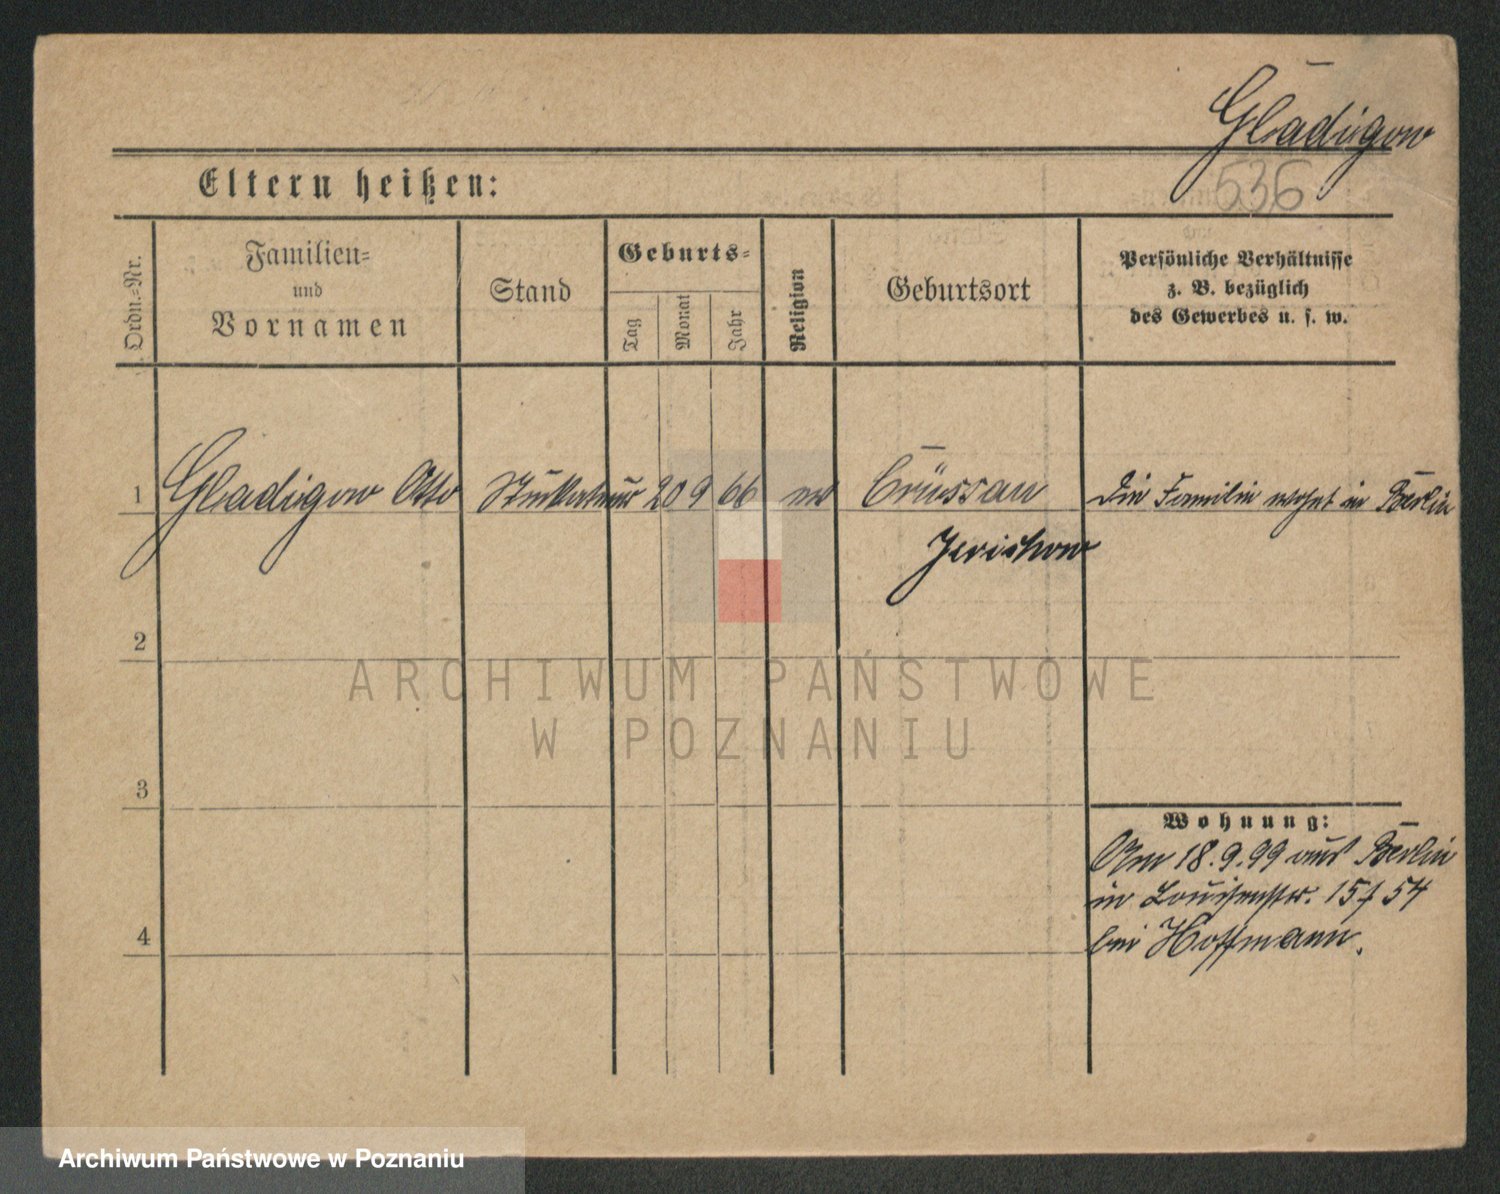 Gladigow
536
Eltern heißen:
Ordn.-Nr.
Familien-
und
Vornamen
Stand
Geburts-
Tag
Monat
Jahr
Religion
Geburtsort
Persönliche Verhältnisse
z. B. bezüglich
des Gewerbes u. s. w.
1 Gladigow Otto Stuckateur 20 9 66 ev Crüssau Die Familie wohnt in Berlin
Jerichow
2
3
4
Wohnung:
Am 18.9.99 aus Berlin
in Louisenstr. 15 f 54
bei Hoffmann.
ARCHIWUM PAŃSTWOWE
W POZNANIU
Archiwum Państwowe w Poznaniu